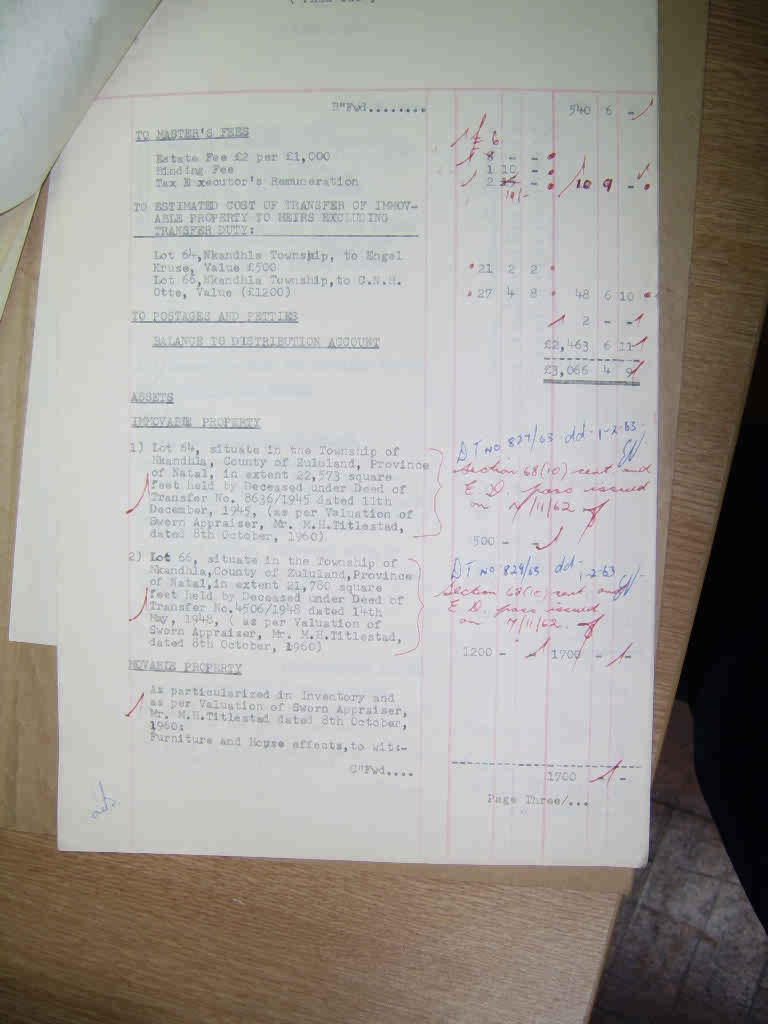 B"Fwd........ 540 6 -
TO MASTER'S FEES
£ 6
Estate Fee £2 per £1,000 8 - -
Binding Fee 1 10 -
Tax Executor's Remuneration 2 - 10 9 -
19/-
TO ESTIMATED COST OF TRANSFER OF IMMOV-
ABLE PROPERTY TO HEIRS EXCLUDING
TRANSFER DUTY:
Lot 64, Nkandhla Township, to Engel
Kruse, Value £500 21 2 2
Lot 66, Nkandhla Township, to G.N.H.
Otte, Value (£1200) 27 4 8 48 6 10
TO POSTAGES AND PETTIES 2 - -
BALANCE TO DISTRIBUTION ACCOUNT £2,463 6 11
£3,066 4 9
ASSETS
IMMOVABLE PROPERTY
1) Lot 64, situate in the Township of
Nkandhla, County of Zululand, Province
of Natal, in extent 22,573 square
feet held by Deceased under Deed of
Transfer No. 8636/1945 dated 11th
December, 1945, (as per Valuation of
Sworn Appraiser, Mr. M.H.Titlestad,
dated 8th October, 1960)
D T No 827/63 dd. 1-2-63
Section 68(10) cert. and
E. D. pass issued
on 7/11/62
500 - -
2) Lot 66, situate in the Township of
Nkandhla, County of Zululand, Province
of Natal, in extent 21,780 square
feet held by Deceased under Deed of
Transfer No. 4506/1948 dated 14th
May, 1948, ( as per Valuation of
Sworn Appraiser, Mr. M.H.Titlestad,
dated 8th October, 1960)
D T No 829/63 dd. 1-2-63
Section 68(10) cert. and
E. D. pass issued
on 7/11/62.
1200 - - 1700 - -
MOVABLE PROPERTY
As particularized in Inventory and
as per Valuation of Sworn Appraiser,
Mr. M.H.Titlestad dated 8th October,
1960:
Furniture and House effects, to wit:-
C"Fwd.... 1700 - -
Page Three/...